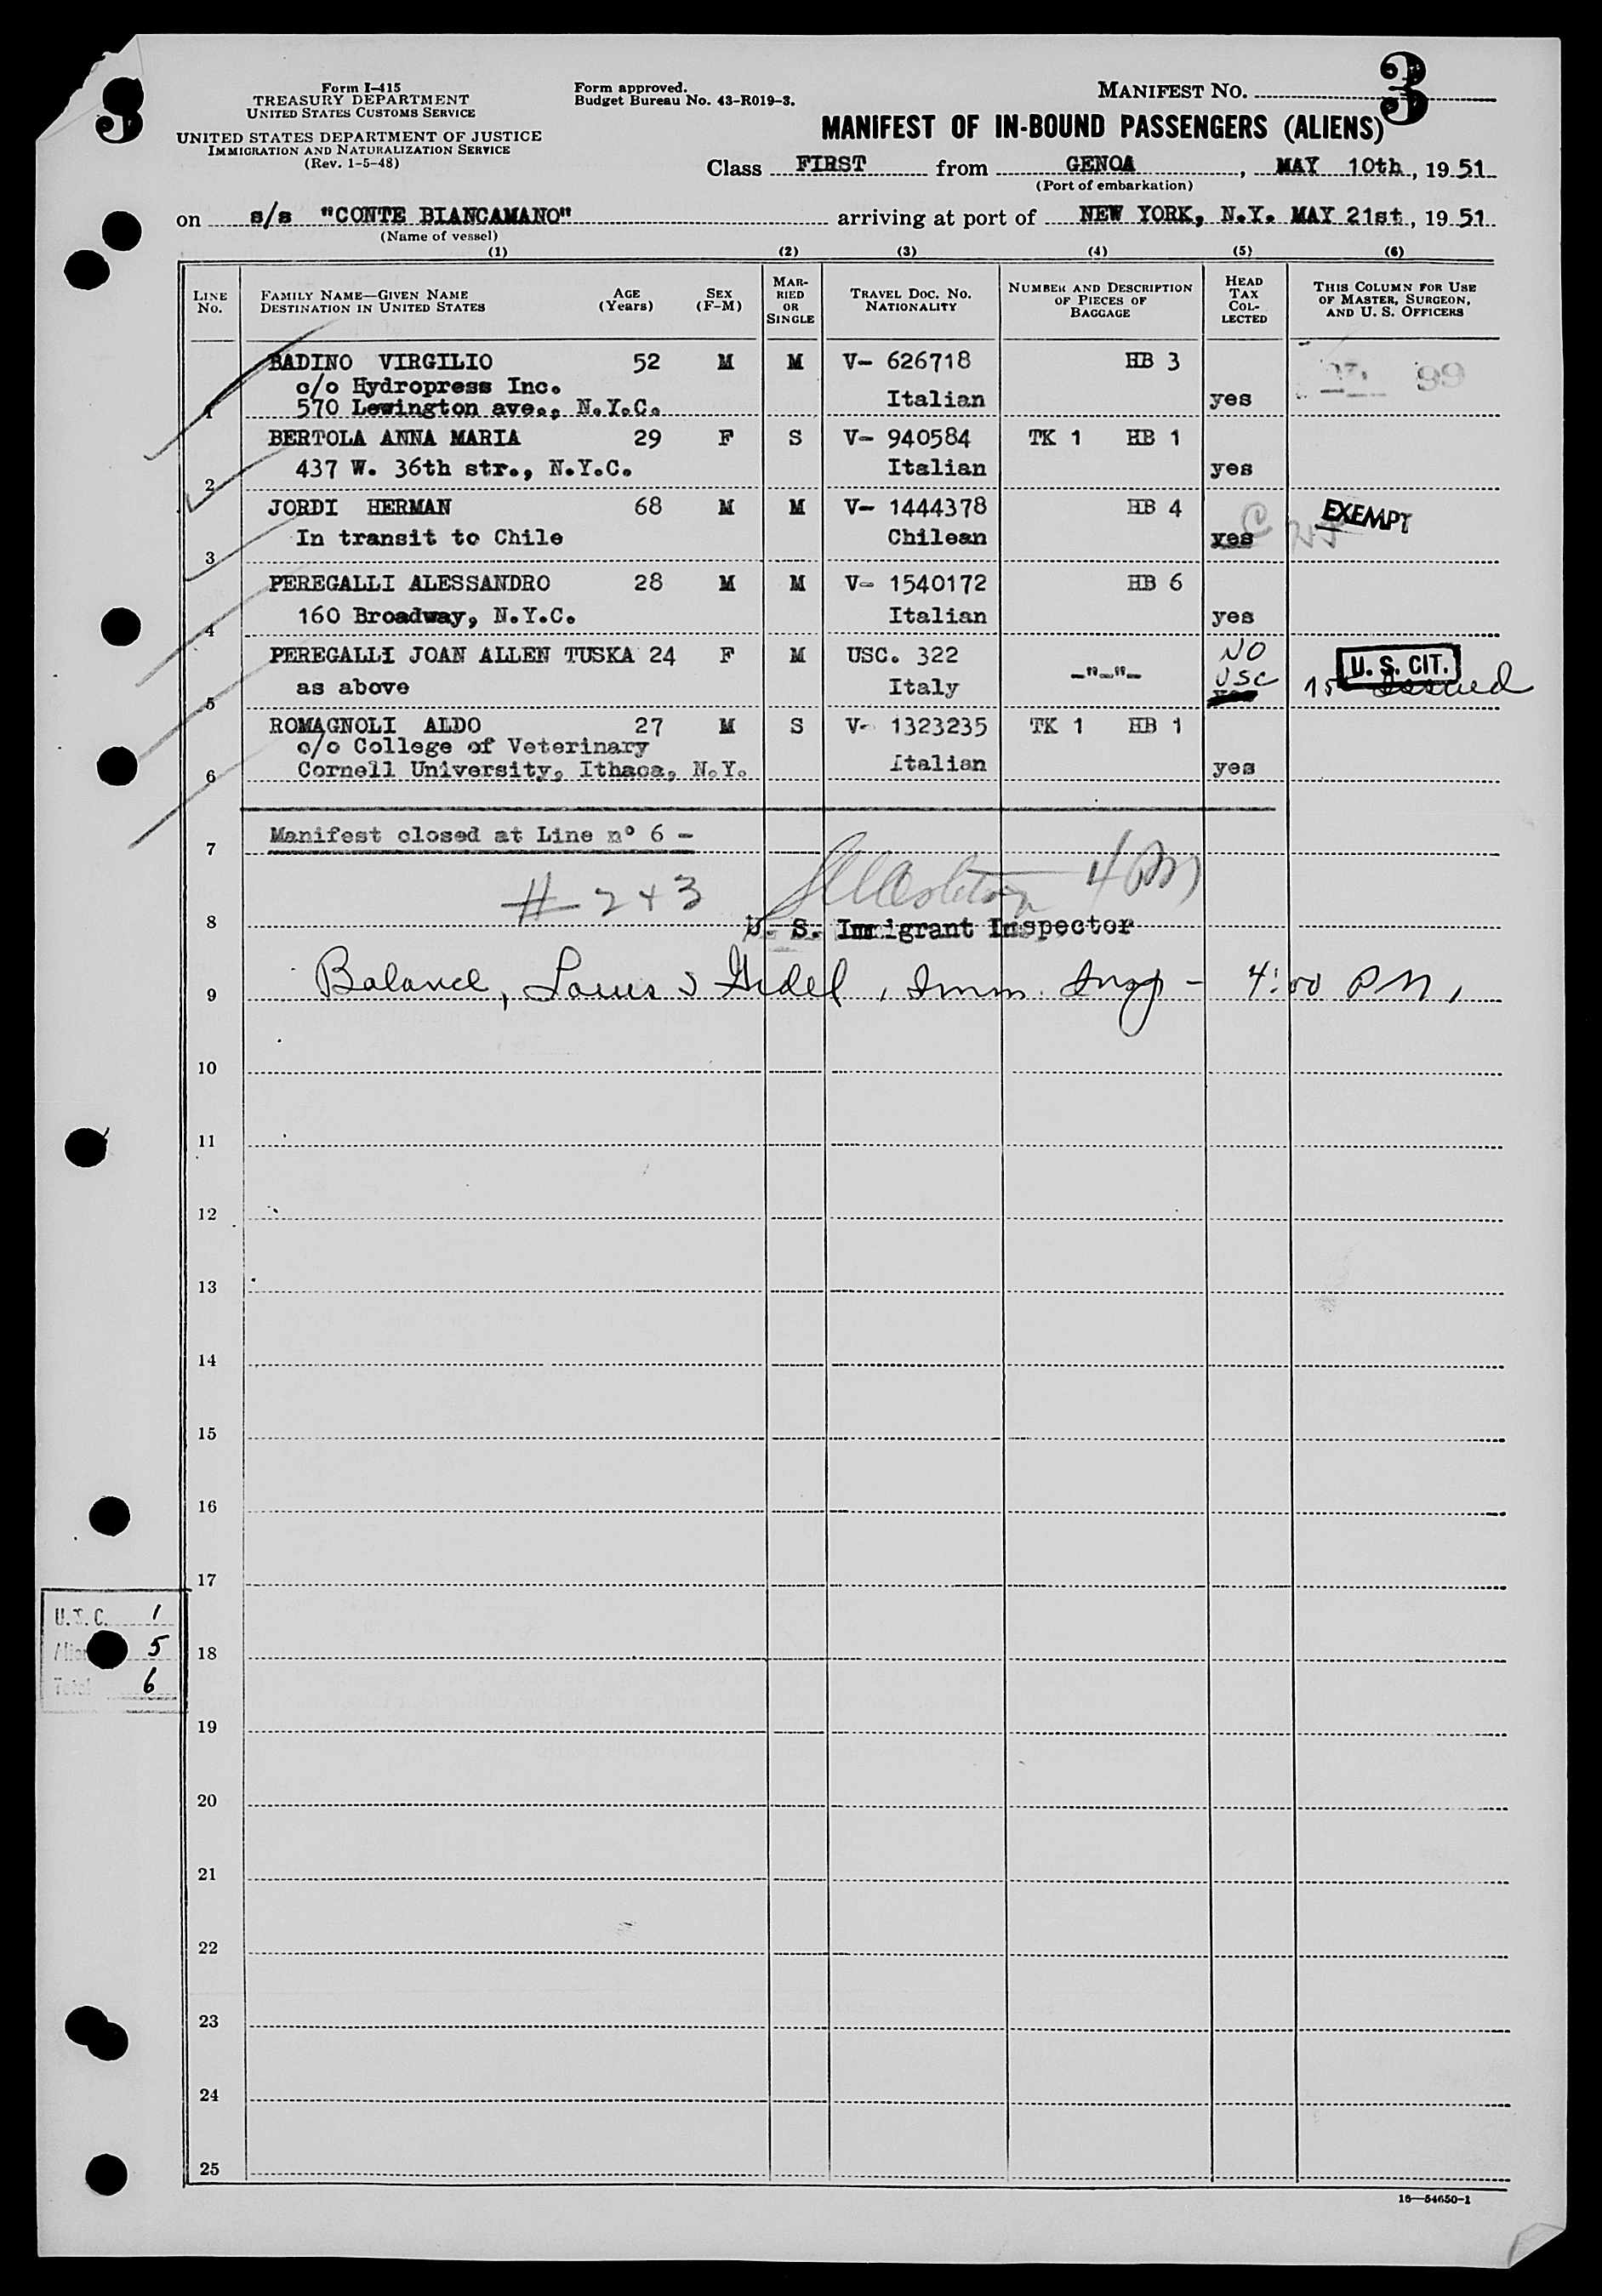 3
Form I-415
TREASURY DEPARTMENT
UNITED STATES CUSTOMS SERVICE
UNITED STATES DEPARTMENT OF JUSTICE
IMMIGRATION AND NATURALIZATION SERVICE
(Rev. 1-5-48)
Form approved.
Budget Bureau No. 43-R019-3.
MANIFEST NO. 3
MANIFEST OF IN-BOUND PASSENGERS (ALIENS)
Class FIRST from GENOA, MAY 10th, 1951
(Port of embarkation)
on s/s "CONTE BIANCAMANO" arriving at port of NEW YORK, N.Y. MAY 21st, 1951
(Name of vessel)
(1) (2) (3) (4) (5) (6)
LINE NO. FAMILY NAME—GIVEN NAME DESTINATION IN UNITED STATES AGE (Years) SEX (F-M) MARRIED OR SINGLE TRAVEL DOC. NO. NATIONALITY NUMBER AND DESCRIPTION OF PIECES OF BAGGAGE HEAD TAX COLLECTED THIS COLUMN FOR USE OF MASTER, SURGEON, AND U. S. OFFICERS
BADINO VIRGILIO 52 M M V- 626718 HB 3 99
c/o Hydropress Inc. Italian yes
1 570 Lewington ave., N.Y.C.
BERTOLA ANNA MARIA 29 F S V- 940584 TK 1 HB 1
437 W. 36th str., N.Y.C. Italian yes
2
JORDI HERMAN 68 M M V- 1444378 HB 4 EXEMPT
In transit to Chile Chilean yes
3
PEREGALLI ALESSANDRO 28 M M V- 1540172 HB 6
160 Broadway, N.Y.C. Italian yes
4
PEREGALLI JOAN ALLEN TUSKA 24 F M USC. 322 -"-"- NO U.S. CIT.
as above Italy USC Issued
5
ROMAGNOLI ALDO 27 M S V- 1323235 TK 1 HB 1
c/o College of Veterinary Italian yes
6 Cornell University, Ithaca, N.Y.
7 Manifest closed at Line nº 6 -
# 2 + 3 4 PM
8 U. S. Immigrant Inspector
9 Balance, Louis Gidel, Imm. Insp - 4:00 PM,
10
11
12
13
14
15
16
17
U.S.C. 1
18 5
Total 6
19
20
21
22
23
24
25
16—54650-1